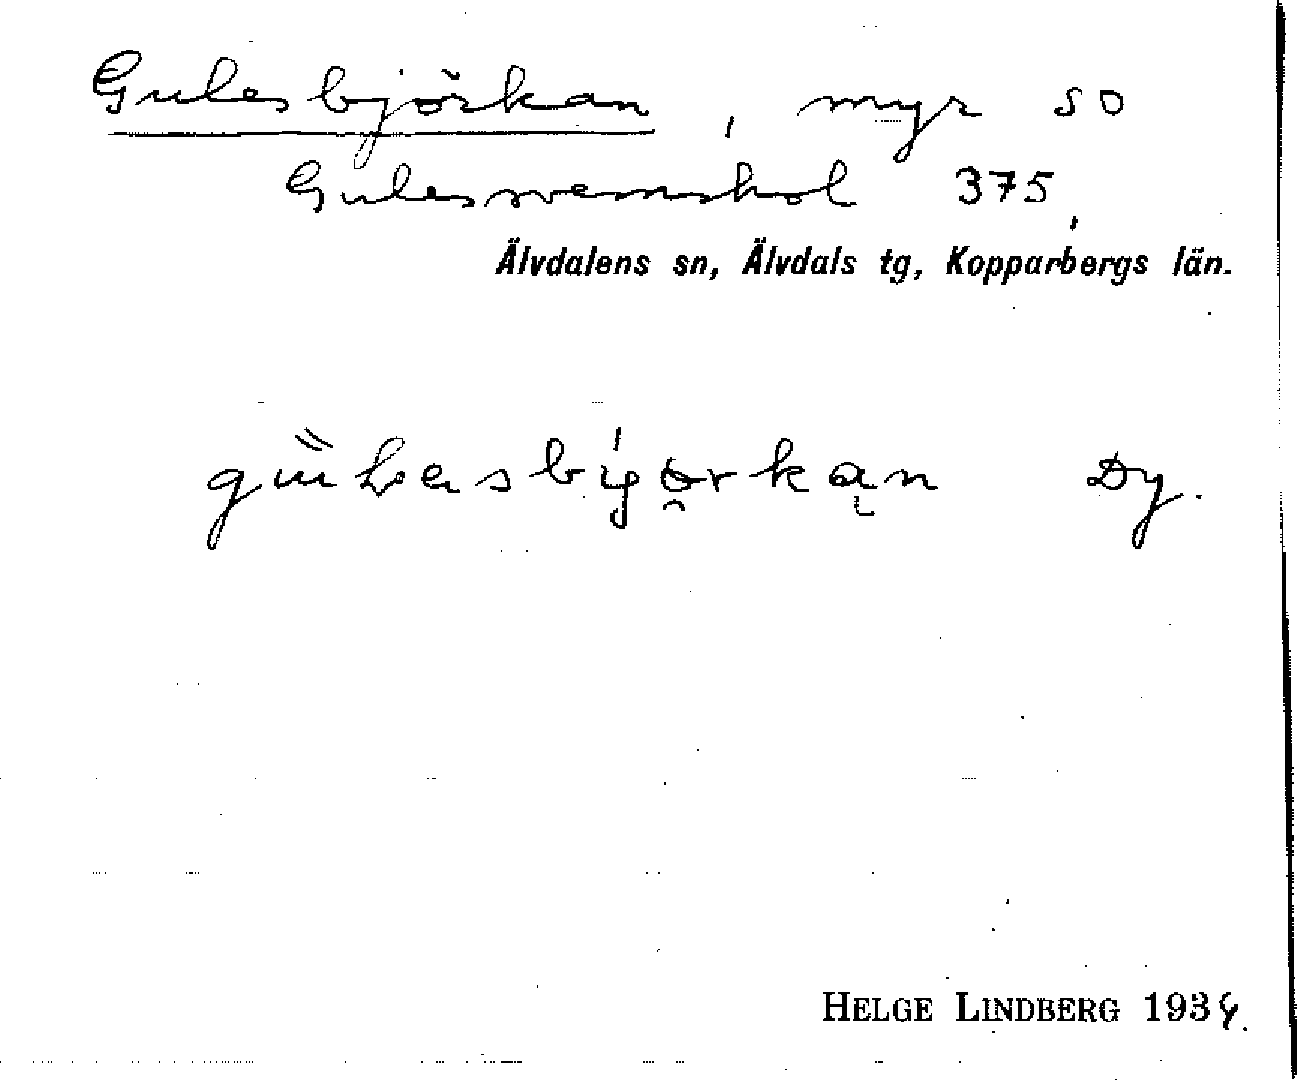 Gulesbjörkan, myr SO
Gulessvemskol 375,
Älvdalens sn, Älvdals tg, Kopparbergs län.
Dy.
HELGE LINDBERG 1934.